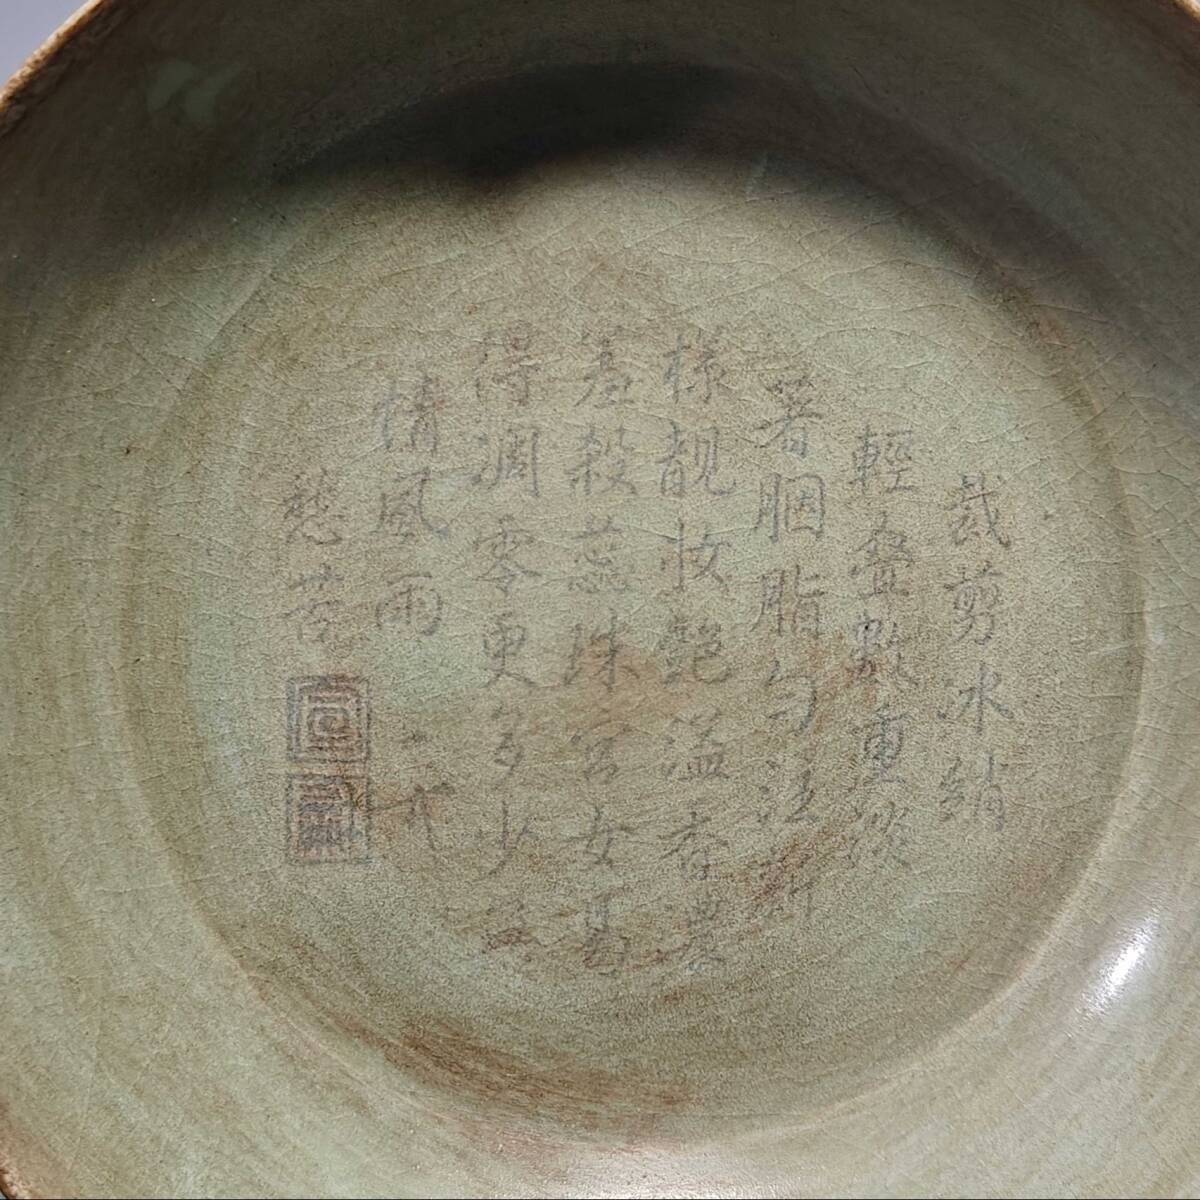 裁剪冰綃
輕疊數重淡
著胭脂勻注新
樣靚妝艷溢香濃
羞殺蕊珠宮女易
得凋零更多少無
情風雨
愁苦